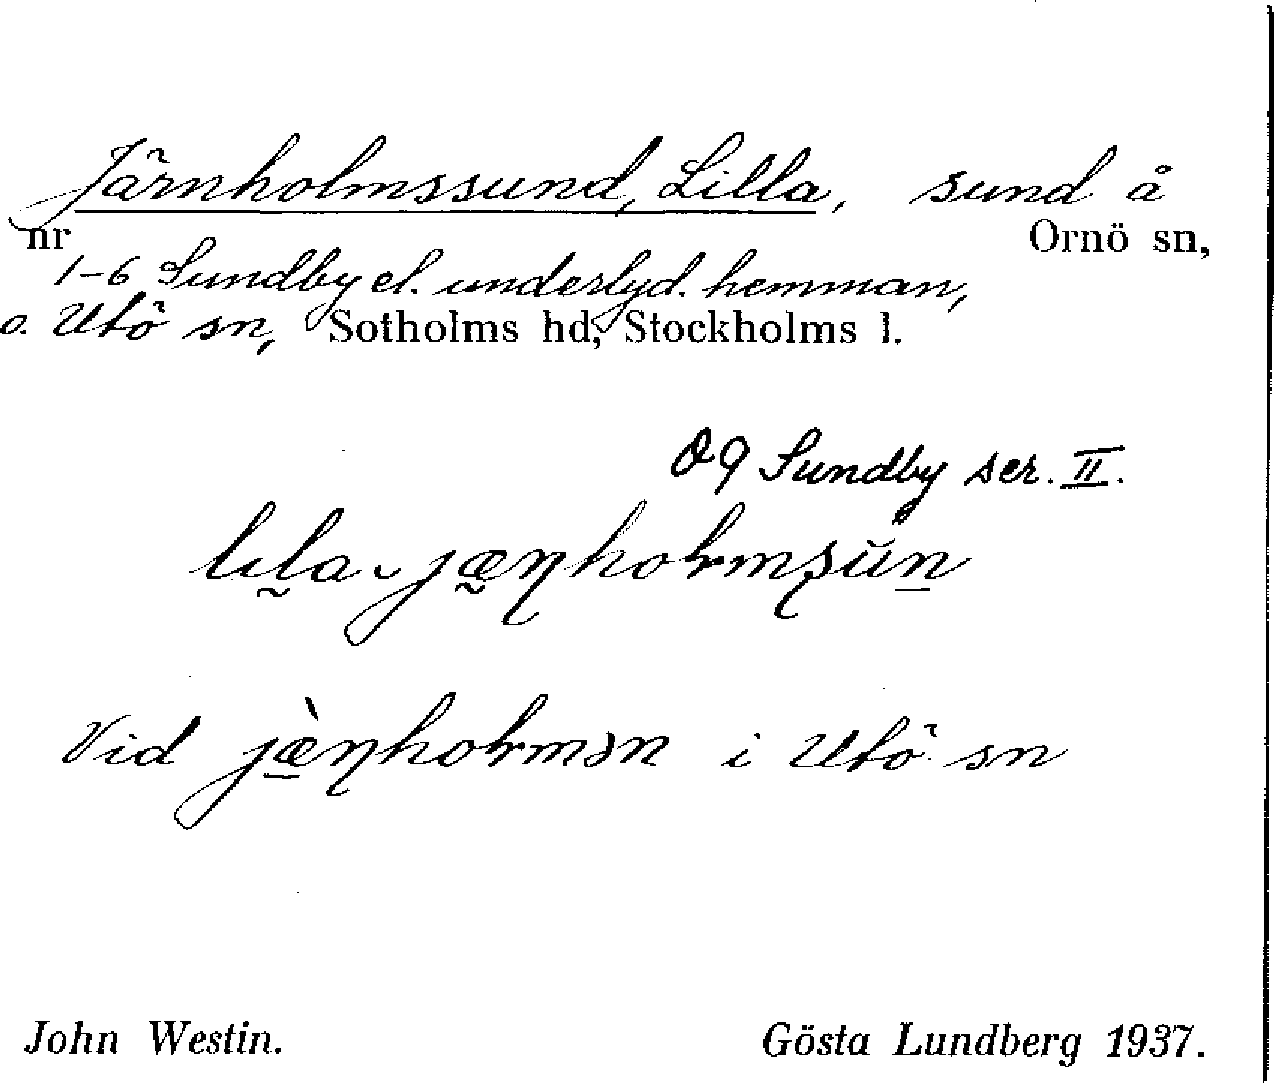 Järnholmssund, Lilla, sund å
nr Ornö sn,
1-6 Sundby el. underlyd. hemman,
o. Utö sn, Sotholms hd, Stockholms l.
O9 Sundby ser. II.
Vid i Utö sn
John Westin. Gösta Lundberg 1937.